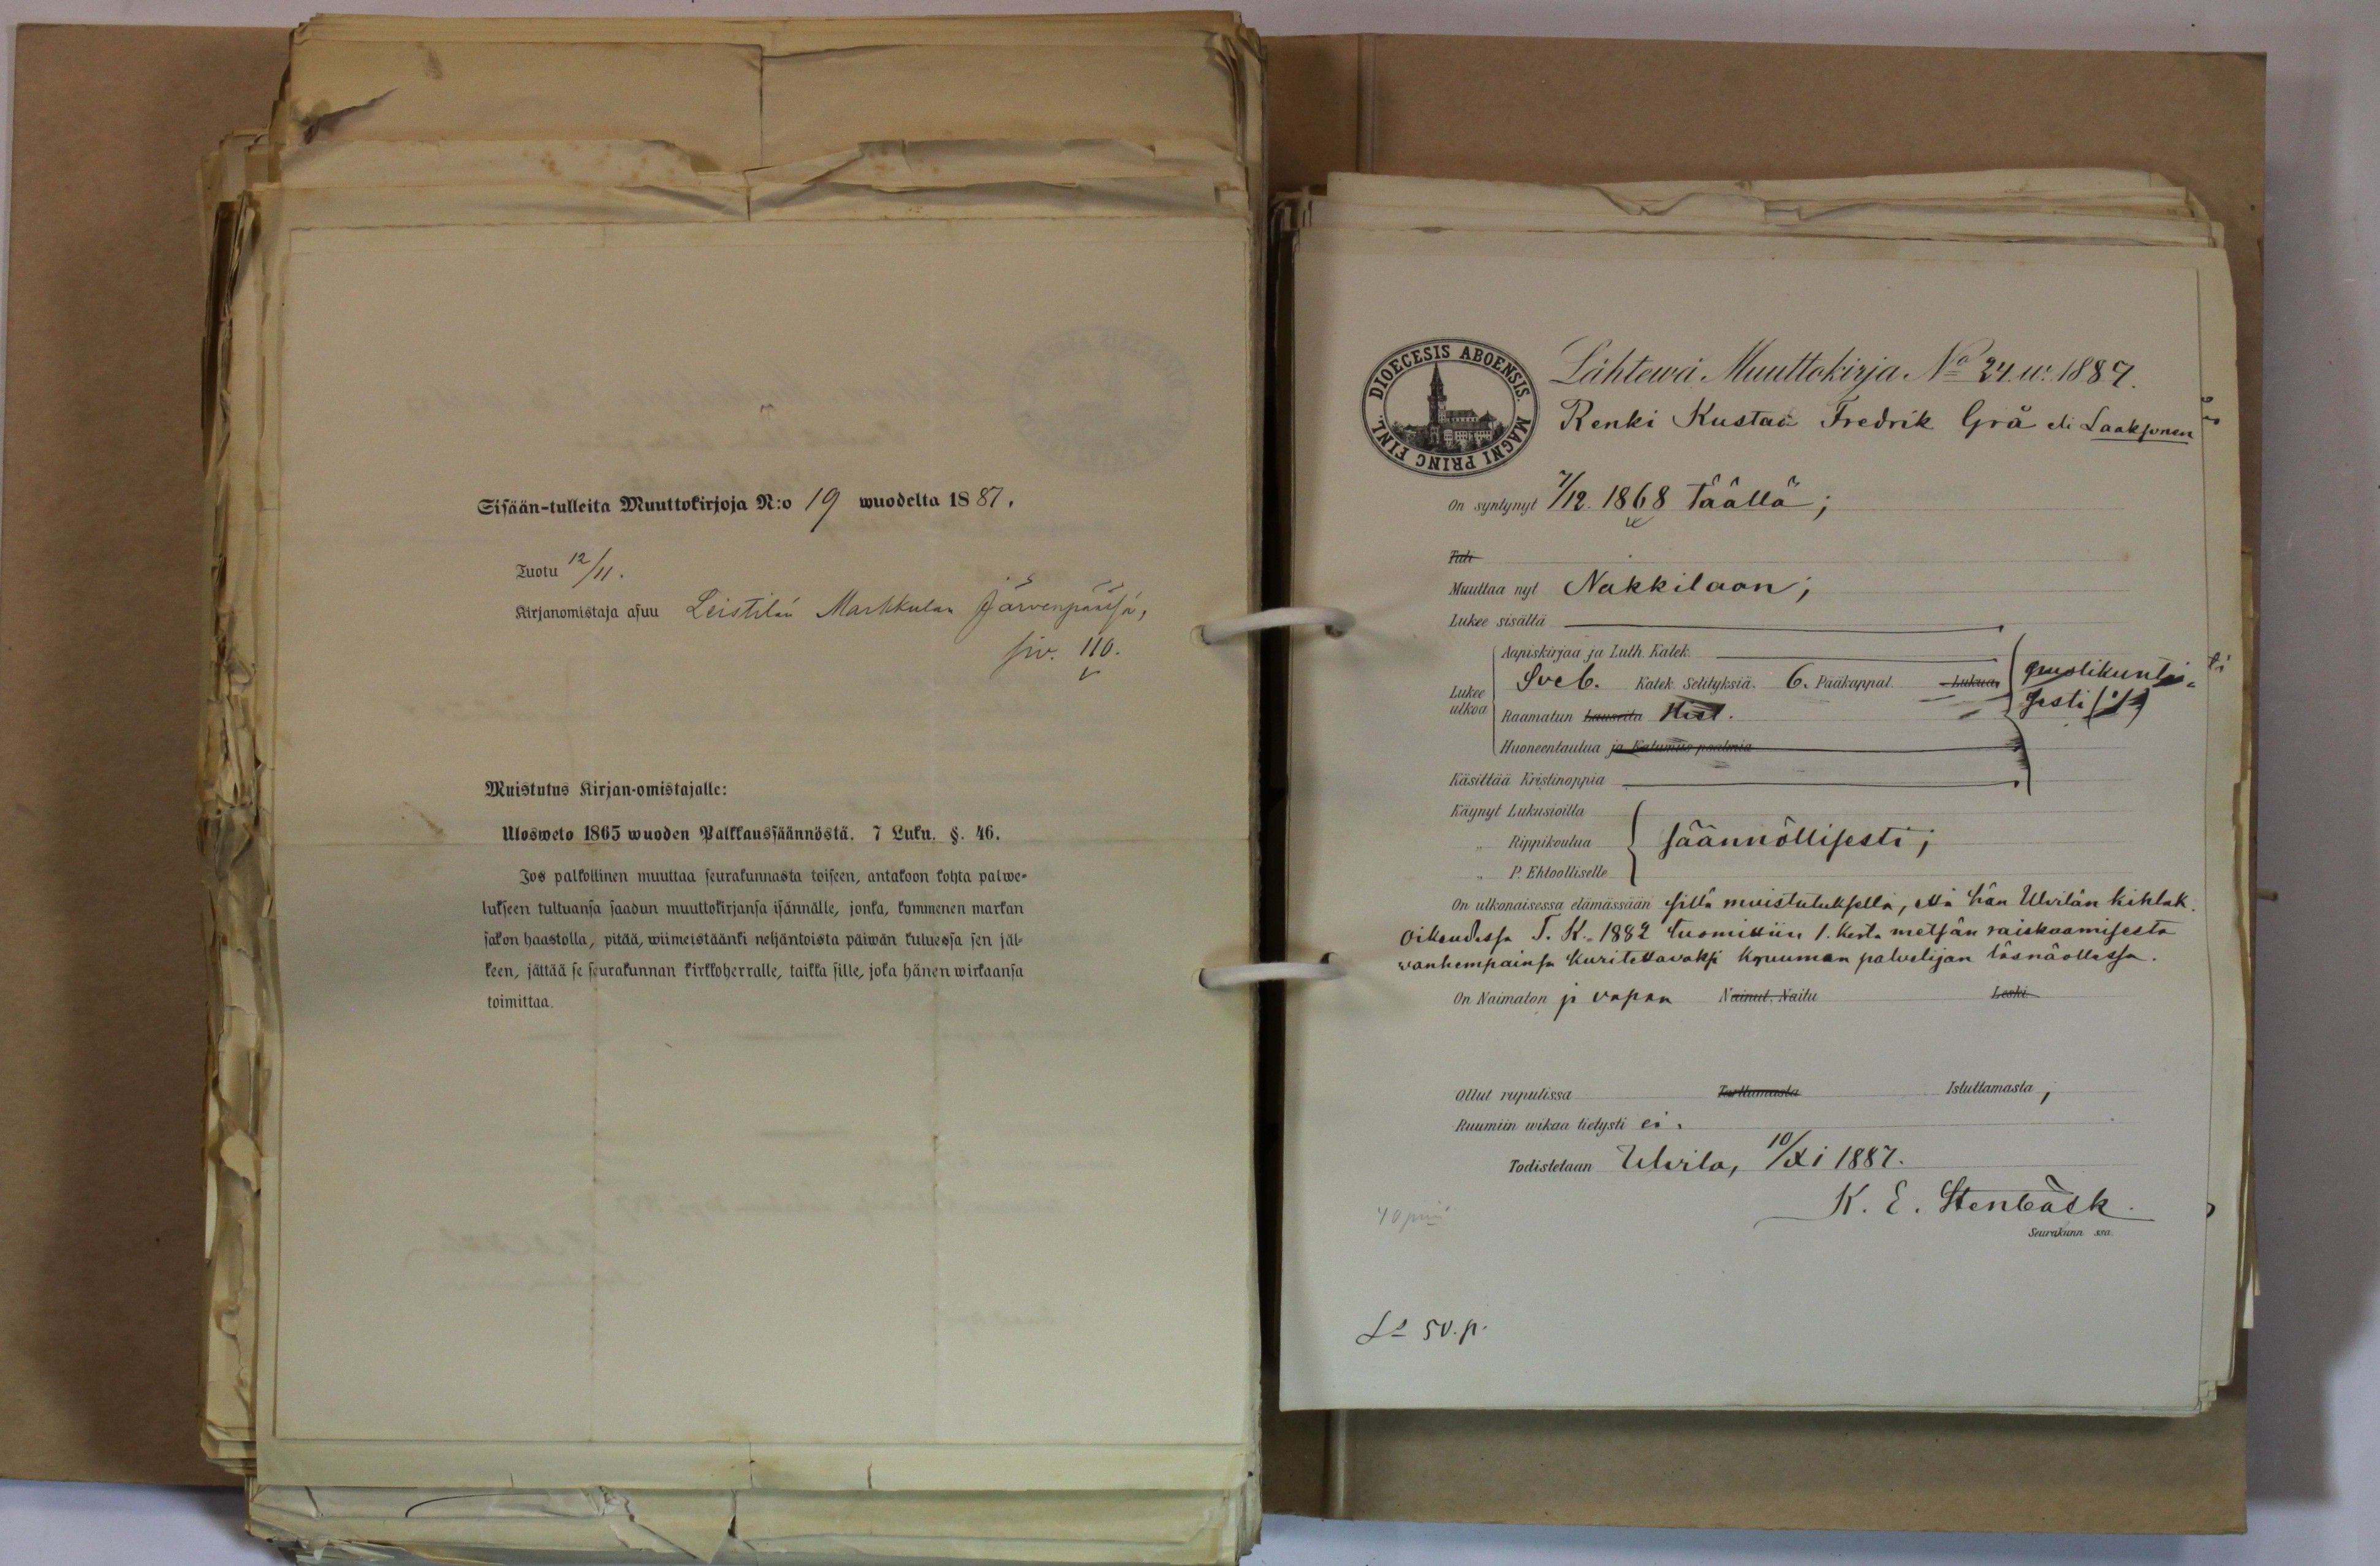 Sisään-tulleita Muuttokirjoja N:o 19 wuodelta 1887.
Tuotu 12/11.
Kirjanomistaja asuu Leistilän Markkulan Järvenpäässä,
siv. 110.
Muistutus Kirjan-omistajalle:
Ulosweto 1865 wuoden Palkkaussäännöstä. 7 Luku. §. 46.
Jos palkollinen muuttaa seurakunnasta toiseen, antakoon kohta palwe-
lukseen tultuansa saadun muuttokirjansa isännälle, jonka, kymmenen markan
sakon haastolla, pitää, wiimeistäänki neljäntoista päiwän kuluessa sen jäl-
keen, jättää se seurakunnan kirkkoherralle, taikka sille, joka hänen wirkaansa
toimittaa.
DIOECESIS ABOENSIS. MAGNI PRINC FINL.
Lähtewä Muuttokirja No 24. w. 1887.
Renki Kustaa Fredrik Grå eli Laaksonen
On syntynyt 7/12. 1868 Täällä;
Tuli
Muuttaa nyt Nakkilaan;
Lukee sisältä
Aapiskirjaa ja Luth. Katek.
Lukee ulkoa
Sveb. Katek. Selityksiä. 6. Pääkappal. Lukua,
Raamatun Lauseita Hist.
Huoneentaulua ja Katumus psalmia
Käsittää Kristinoppia
Käynyt Lukusioilla
„ Rippikoulua säännöllisesti;
„ P. Ehtoolliselle
On ulkonaisessa elämässään sillä muistutuksella, että hän Ulvilan kihlak.
Oikeudessa T. K. 1882 tuomittiin 1. kerta metsän raiskaamisesta
vanhempainsa kuritettavaksi kruunan palvelijan läsnäollessa.
On Naimaton ja vapaa Nainut. Naitu Leski
Ollut rupulissa Tarttumasta Istuttamasta;
Ruumiin wikaa tietysti ei.
Todistetaan Ulvila, 10/XI 1887.
K. E. Stenbäck.
Seurakunn ssa.
40 pni
50.p.